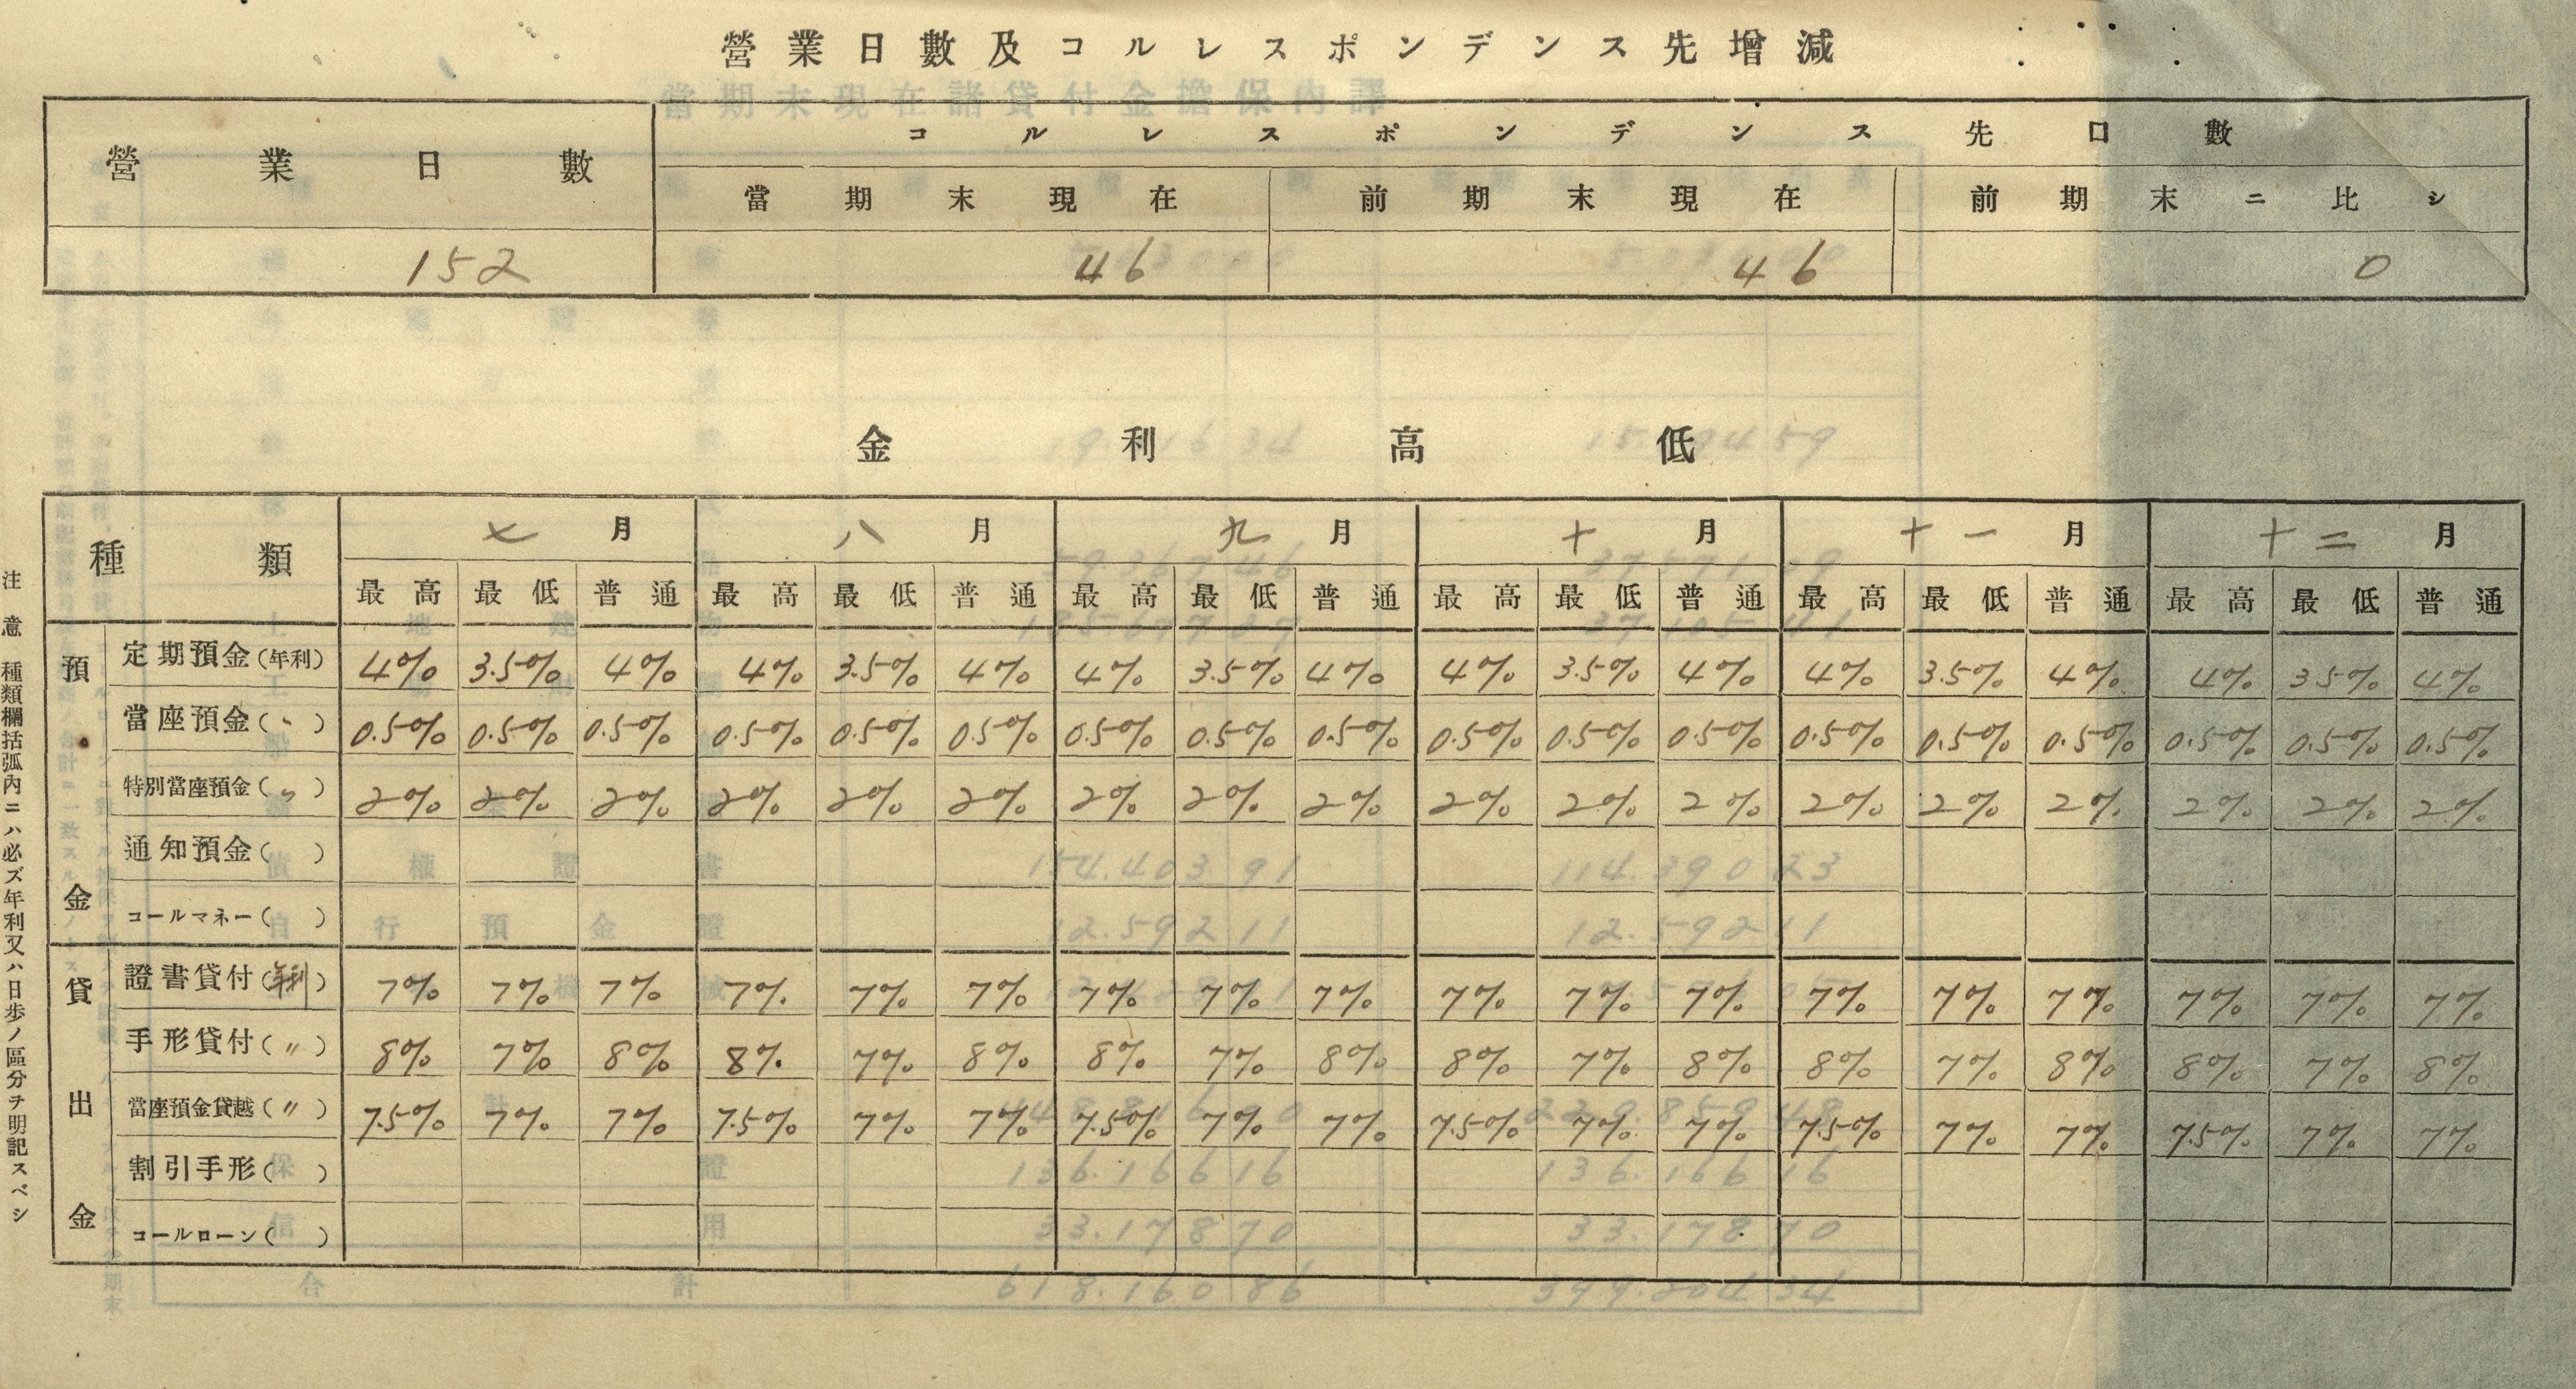 營業日數及コルレスポンデンス先增減
營業日數 コルレスポンデンス先口數
當期末現在 前期末現在 前期末ニ比シ
152 46 46 0
金利高低
種類 七月 八月 九月 十月 十一月 十二月
最高 最低 普通 最高 最低 普通 最高 最低 普通 最高 最低 普通 最高 最低 普通 最高 最低 普通
預金
定期預金(年利) 4% 3.5% 4% 4% 3.5% 4% 4% 3.5% 4% 4% 3.5% 4% 4% 3.5% 4% 4% 3.5% 4%
當座預金(〃) 0.5% 0.5% 0.5% 0.5% 0.5% 0.5% 0.5% 0.5% 0.5% 0.5% 0.5% 0.5% 0.5% 0.5% 0.5% 0.5% 0.5% 0.5%
特別當座預金(〃) 2% 2% 2% 2% 2% 2% 2% 2% 2% 2% 2% 2% 2% 2% 2% 2% 2% 2%
通知預金( )
コールマネー( )
貸出金
證書貸付(年利) 7% 7% 7% 7% 7% 7% 7% 7% 7% 7% 7% 7% 7% 7% 7% 7% 7% 7%
手形貸付(〃) 8% 7% 8% 8% 7% 8% 8% 7% 8% 8% 7% 8% 8% 7% 8% 8% 7% 8%
當座預金貸越(〃) 7.5% 7% 7% 7.5% 7% 7% 7.5% 7% 7% 7.5% 7% 7% 7.5% 7% 7% 7.5% 7% 7%
割引手形( )
コールローン( )
注意 種類欄括弧內ニハ必ズ年利又ハ日步ノ區分ヲ明記スベシ